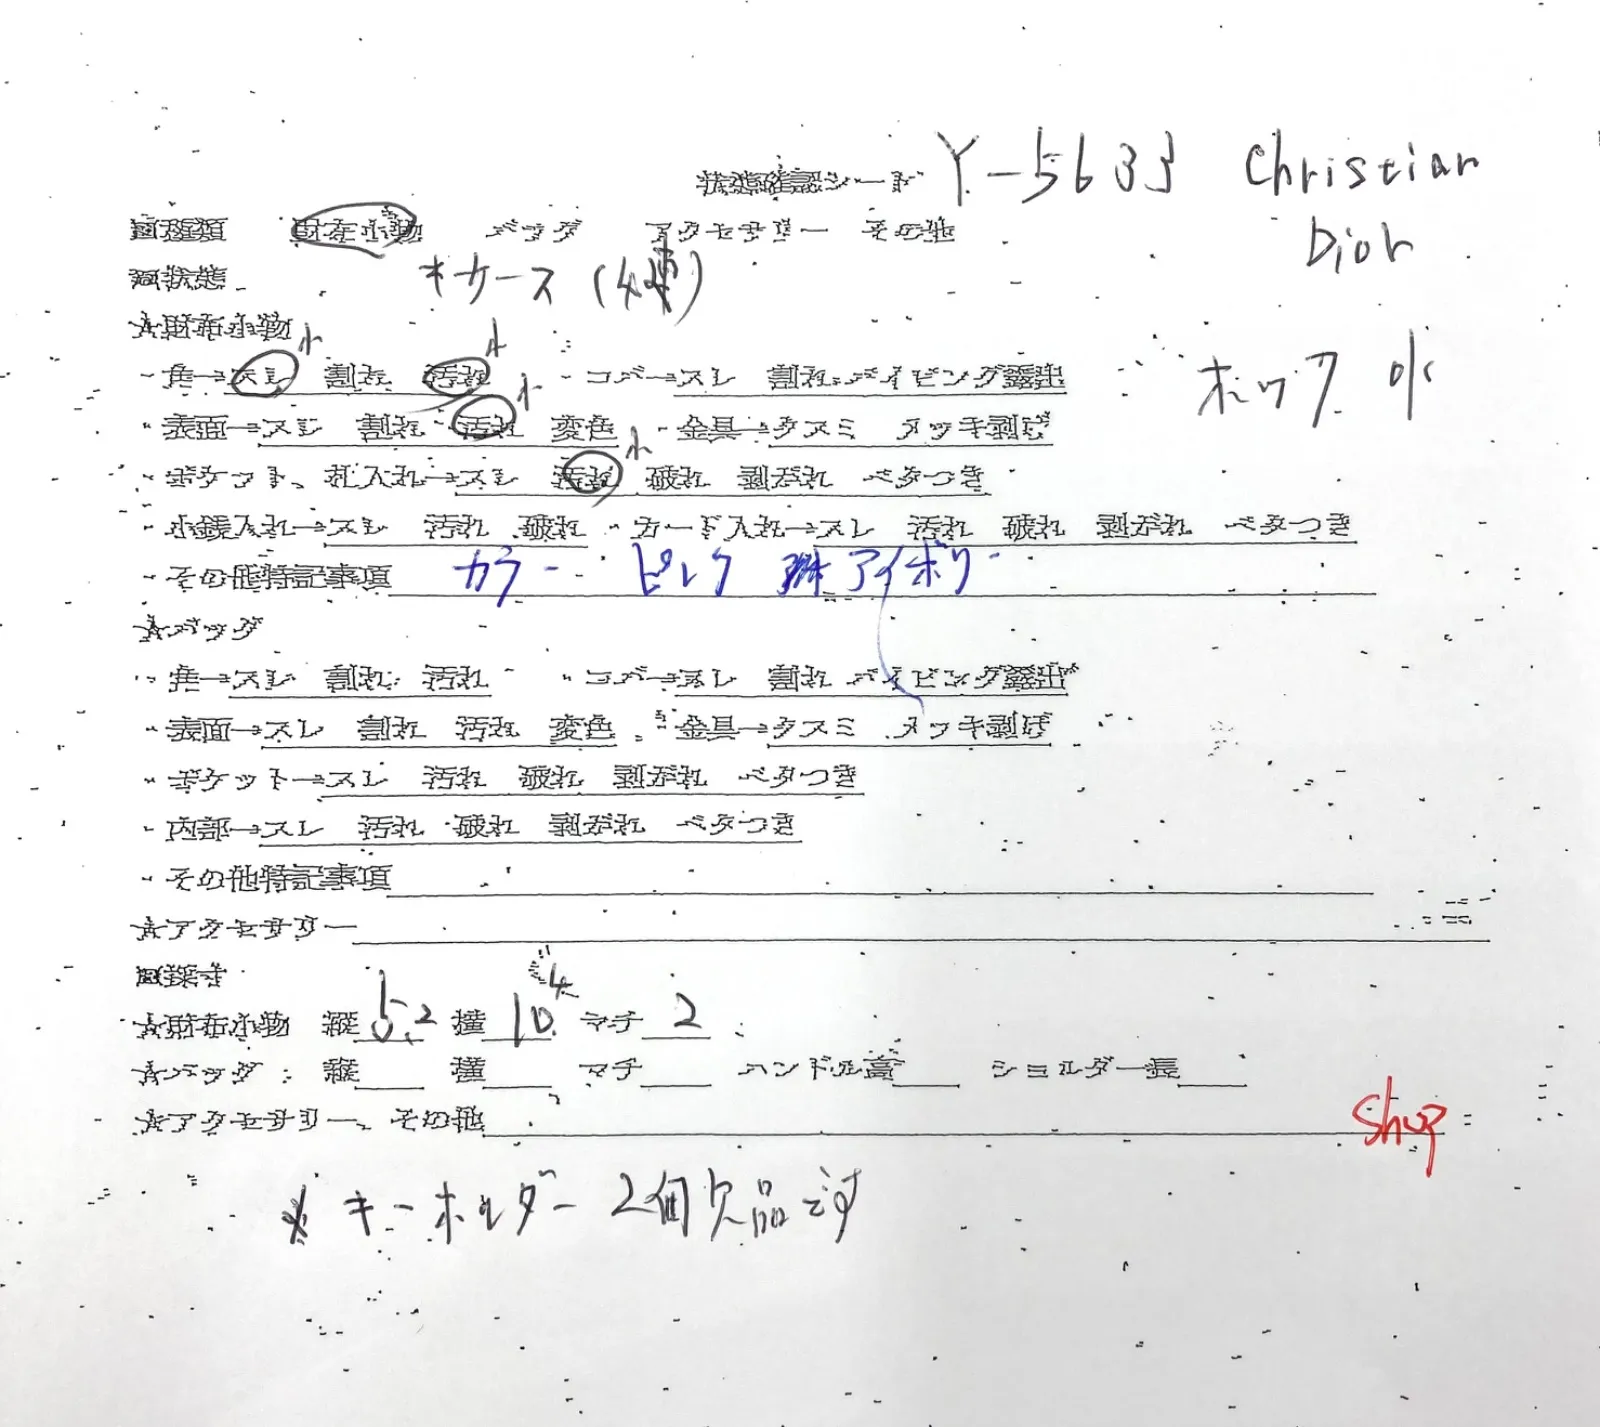 状態確認シート Y-5633 Christian
Dior
□種類 財布小物 バッグ アクセサリー その他
□状態 キケース (4連)
☆財布小物
・角→スレ小 割れ 汚れ小 ・コバ→スレ 割れ パイピング露出
ホック 小
・表面→スレ 割れ 汚れ小 変色 ・金具→クスミ メッキ剥げ
・ポケット、札入れ→スレ 汚れ小 破れ 剥がれ ベタつき
・小銭入れ→スレ 汚れ 破れ ・カード入れ→スレ 汚れ 破れ 剥がれ ベタつき
・その他特記事項 カラー ピンク アイボリー
☆バッグ
・角→スレ 割れ 汚れ ・コバ→スレ 割れ パイピング露出
・表面→スレ 割れ 汚れ 変色 ・金具→クスミ メッキ剥げ
・ポケット→スレ 汚れ 破れ 剥がれ ベタつき
・内部→スレ 汚れ 破れ 剥がれ ベタつき
・その他特記事項
☆アクセサリー
□採寸
☆財布小物 縦 5.2 横 10.4 マチ 2
☆バッグ : 縦 横 マチ ハンドル高 ショルダー長
☆アクセサリー、その他
Shop
※キーホルダー 2個欠品です